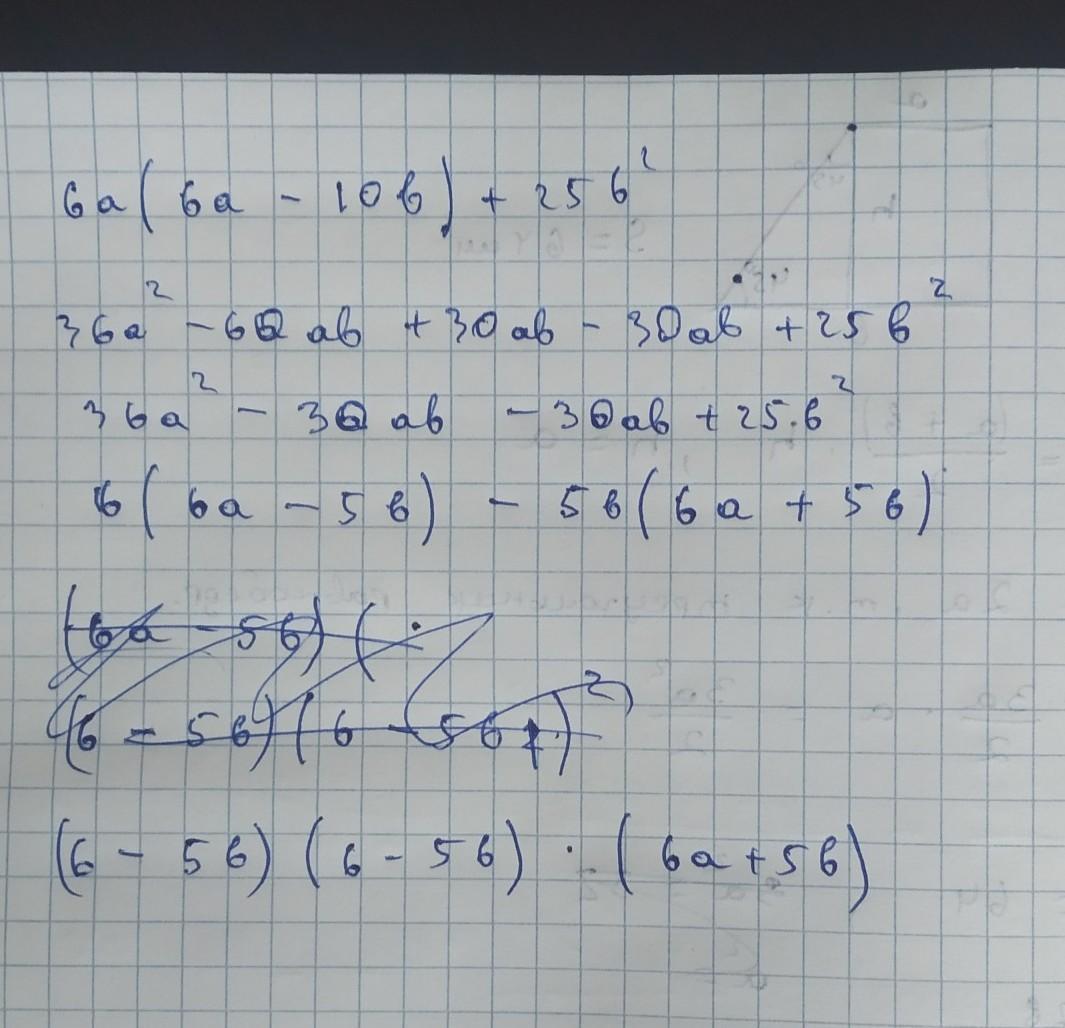 6a(6a - 10b) + 25b²
36a² - 60ab + 30ab - 30ab + 25b²
36a² - 30ab - 30ab + 25b²
6(6a - 5b) - 5b(6a + 5b)
(6a - 5b)(
(6 - 5b)(6 - 5b)²
(6 - 5b)(6 - 5b) · (6a + 5b)